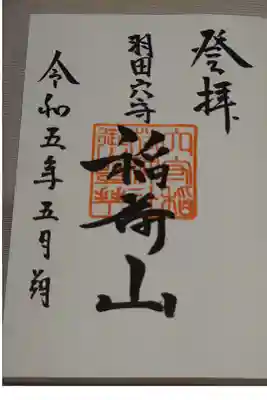 登拝
羽田穴守
稲荷山
令和五年五月朔